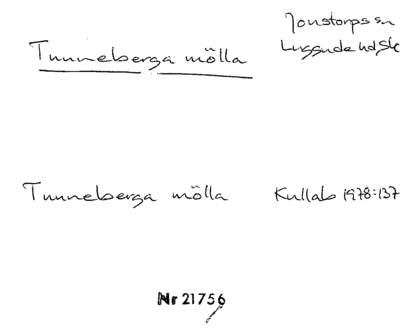 Jonstorps sn
Tunneberga mölla
Luggude hd, Sk
Tunneberga mölla Kullab 1978:137
Nr 21756